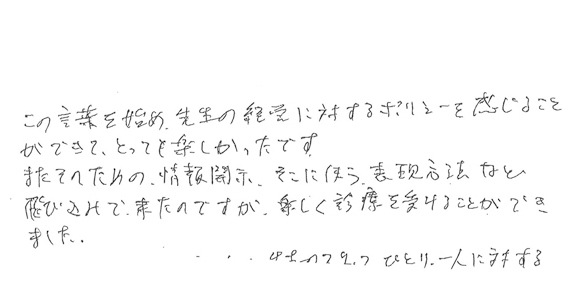 この言葉を始め、先生の経営に対するポリシーを感じること
ができて、とっても楽しかったです。
またそのための、情報開示、そこに使う、表現方法など
飛び込みで、来たのですが、楽しく診療を受けることができ
ました。
・・・ ひとり、一人に対する